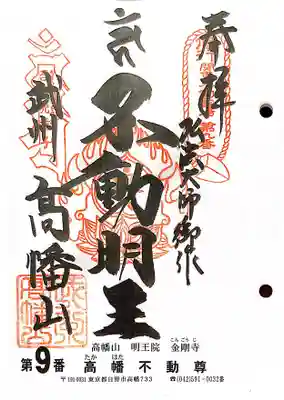 奉拝
弘法大師御作
不動明王
武州 高幡山
高幡山 明王院 金剛寺
こんごうじ
第9番 高幡不動尊
たか はた
〒191-0031 東京都日野市高幡733 ☎(042)591-0032番